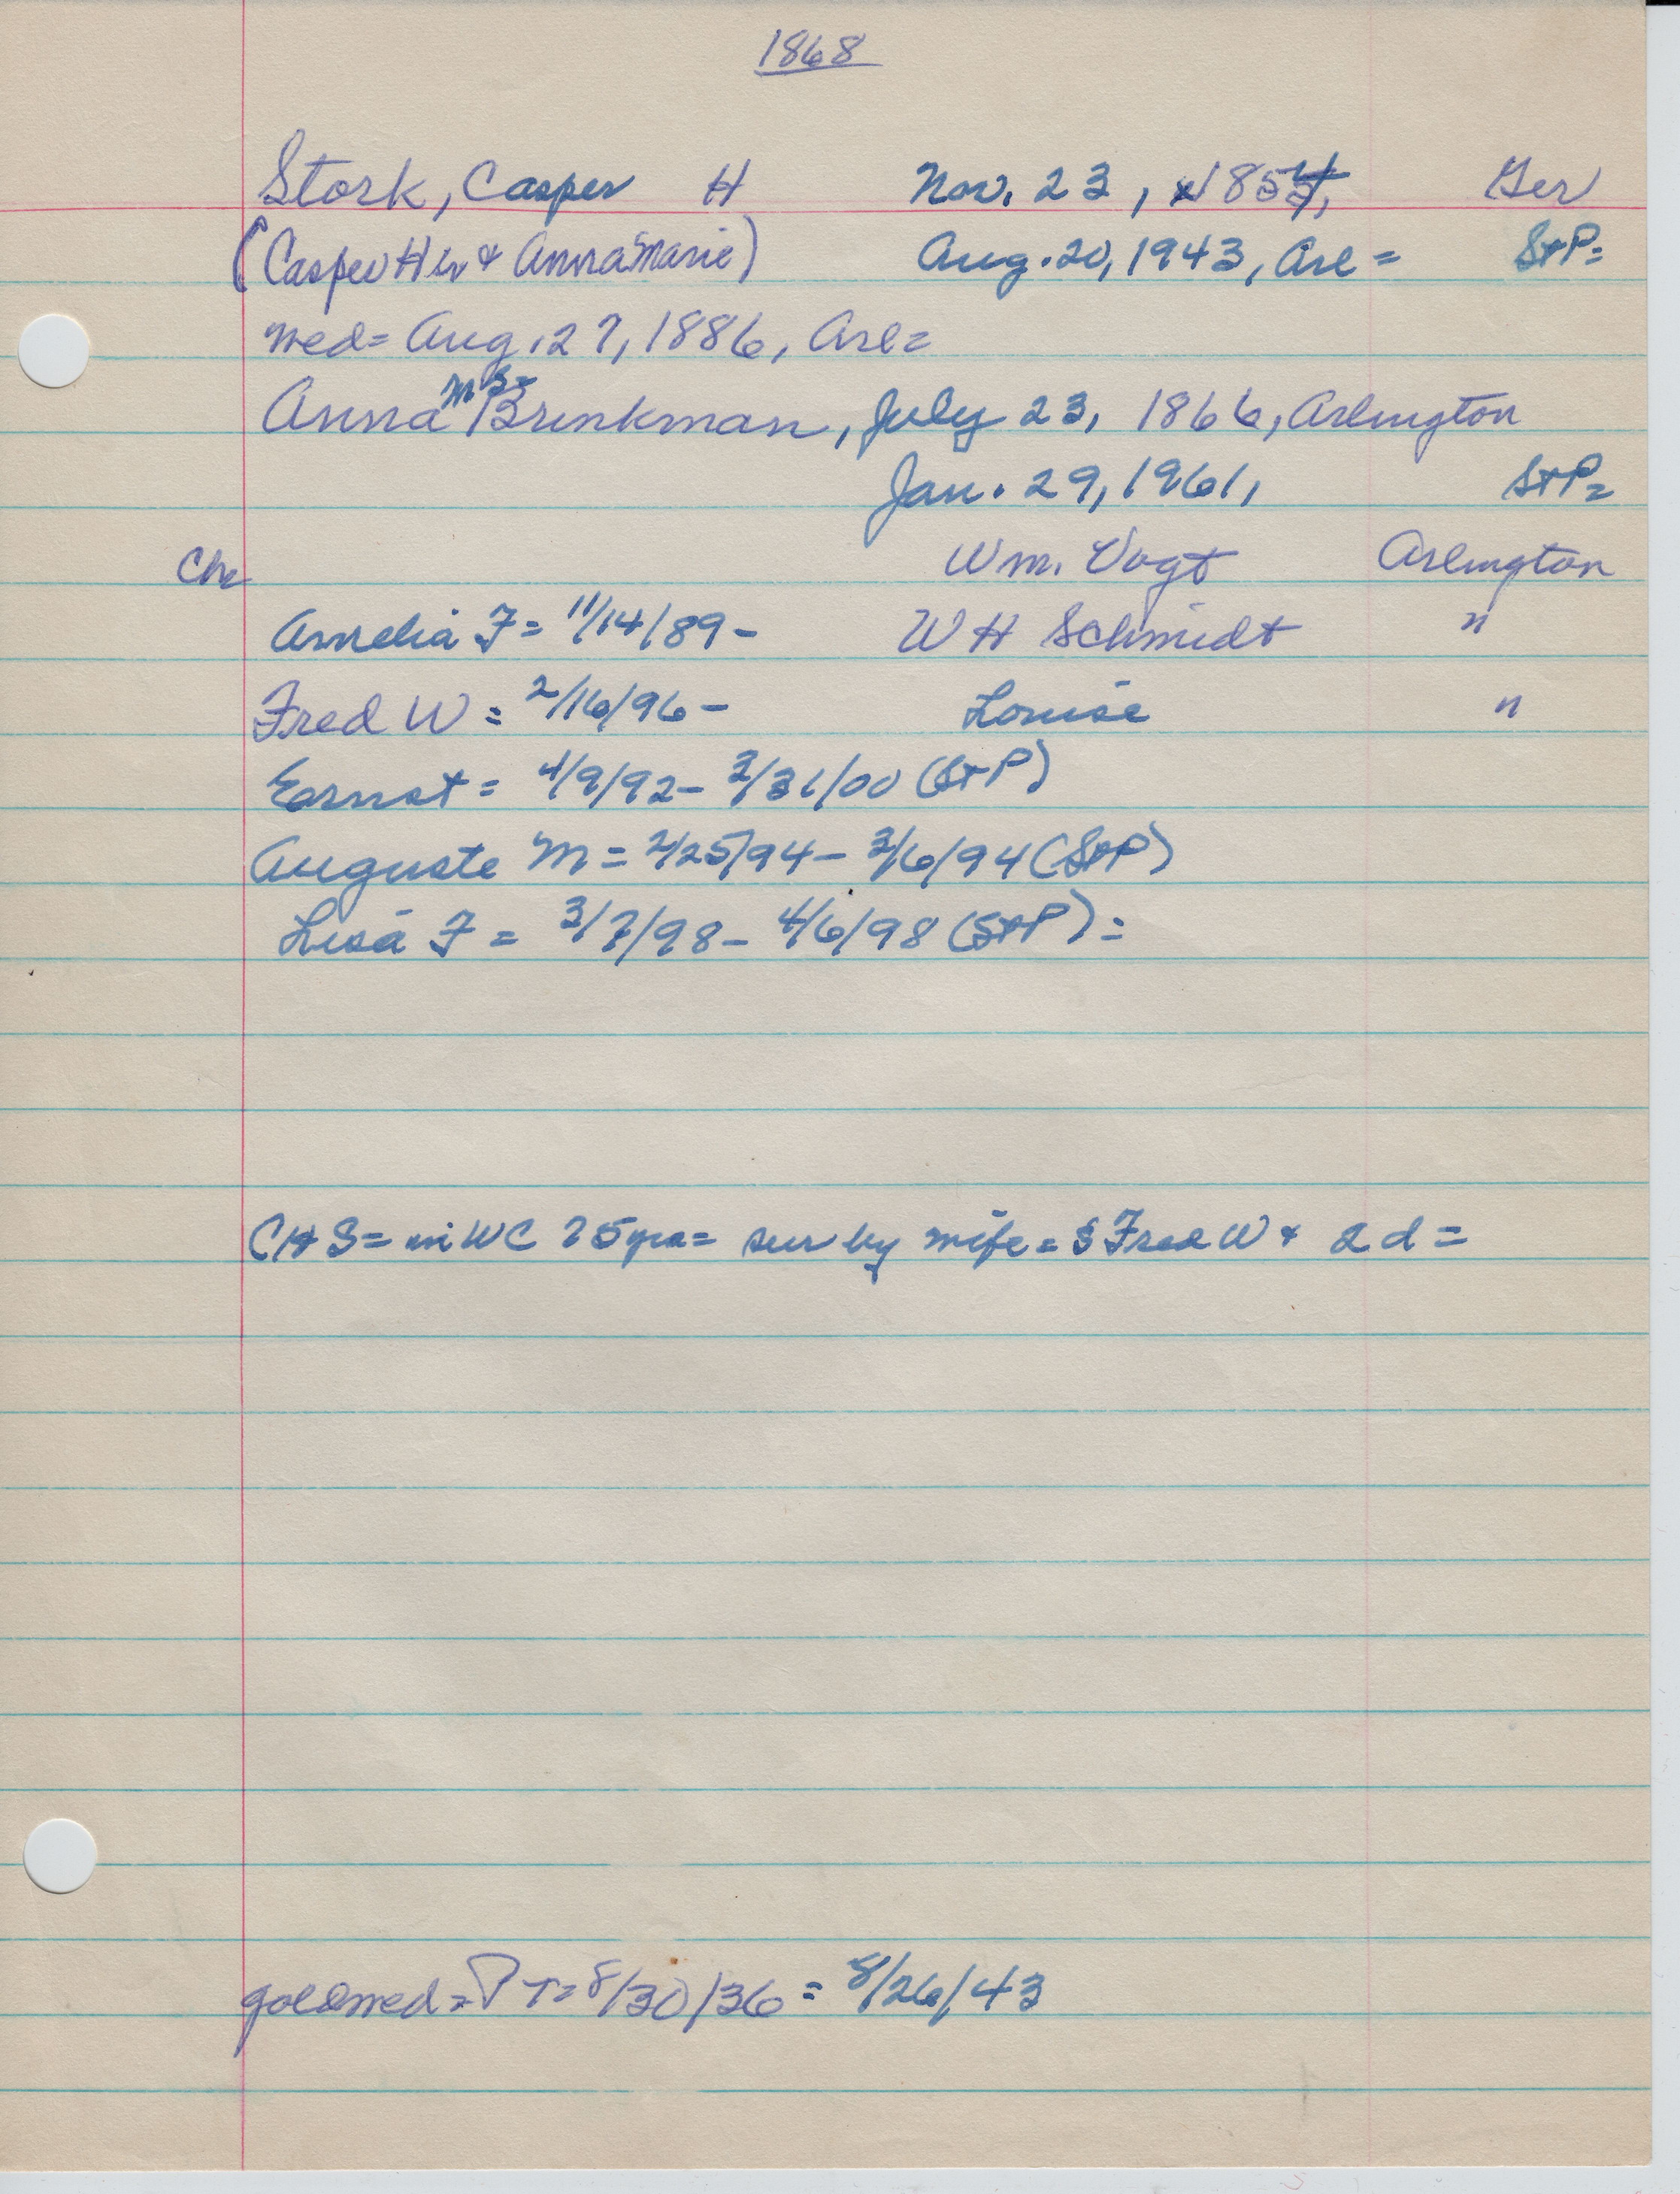 1868
Stork, Casper H Nov. 23, 1854, Ger
(Casper H & Anna Marie) Aug. 20, 1943, Arl = St P =
wed = Aug. 27, 1886, Arl =
M S =
Anna Brinkman, July 23, 1866, Arlington
Jan. 29, 1961, St P =
Ch Wm. Vogt Arlington
Amelia F = 11/14/89 - W H Schmidt "
Fred W = 2/16/96 - Louise "
Earnst = 4/9/92 - 3/31/00 (St P)
Auguste M = 2/25/94 - 3/6/94 (St P)
Lisa F = 3/7/98 - 4/6/98 (St P) =
C H S = in WC 75 yrs = sur by wife = S Fred W & 2 d =
goldwed = P T = 8/30/36 = 8/26/43